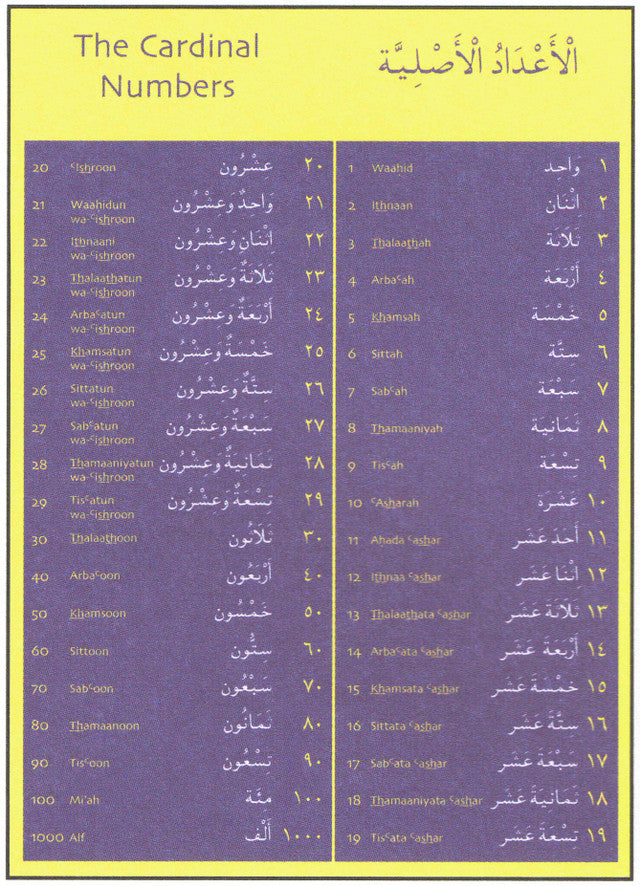 The Cardinal
Numbers
الْأَعْدَادُ الْأَصْلِيَّة
20 ʿIshroon عِشْرُون ٢٠
21 Waahidun وَاحِدٌ وَعِشْرُون ٢١
wa-ʿishroon
22 Ithnaani اِثْنَان وَعِشْرُون ٢٢
wa-ʿishroon
23 Thalaathatun ثَلَاثَةٌ وَعِشْرُون ٢٣
wa-ʿishroon
24 Arbaʿatun أَرْبَعَةٌ وَعِشْرُون ٢٤
wa-ʿishroon
25 Khamsatun خَمْسَةٌ وَعِشْرُون ٢٥
wa-ʿishroon
26 Sittatun سِتَّةٌ وَعِشْرُون ٢٦
wa-ʿishroon
27 Sabʿatun سَبْعَةٌ وَعِشْرُون ٢٧
wa-ʿishroon
28 Thamaaniyatun ثَمَانِيَةٌ وَعِشْرُون ٢٨
wa-ʿishroon
29 Tisʿatun تِسْعةٌ وَعِشْرُون ٢٩
wa-ʿishroon
30 Thalaathoon ثَلَاثُون ٣٠
40 Arbaʿoon أَرْبَعُون ٤٠
50 Khamsoon خَمْسُون ٥٠
60 Sittoon سِتُّون ٦٠
70 Sabʿoon سَبْعُون ٧٠
80 Thamaanoon ثَمَانُون ٨٠
90 Tisʿoon تِسْعُون ٩٠
100 Mi'ah مِئَة ١٠٠
1000 Alf أَلْف ١٠٠٠
1 Waahid وَاحِد ١
2 Ithnaan اِثْنَان ٢
3 Thalaathah ثَلَاثَة ٣
4 Arbaʿah أَرْبَعَة ٤
5 Khamsah خَمْسَة ٥
6 Sittah سِتَّة ٦
7 Sabʿah سَبْعَة ٧
8 Thamaaniyah ثَمَانِيَة ٨
9 Tisʿah تِسْعَة ٩
10 ʿAsharah عَشَرَة ١٠
11 Ahada ʿashar أَحَدَ عَشَر ١١
12 Ithnaa ʿashar اِثْنَا عَشَر ١٢
13 Thalaathata ʿashar ثَلَاثَةَ عَشَر ١٣
14 Arbaʿata ʿashar أَرْبَعَةَ عَشَر ١٤
15 Khamsata ʿashar خَمْسَةَ عَشَر ١٥
16 Sittata ʿashar سِتَّةَ عَشَر ١٦
17 Sabʿata ʿashar سَبْعَةَ عَشَر ١٧
18 Thamaaniyata ʿashar ثَمَانِيَةَ عَشَر ١٨
19 Tisʿata ʿashar تِسْعَةَ عَشَر ١٩